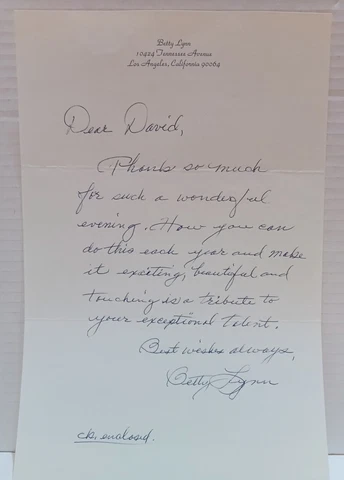 Betty Lynn
10424 Tennessee Avenue
Los Angeles, California 90064
Dear David,
Thanks so much
for such a wonderful
evening. How you can
do this each year and make
it exciting, beautiful and
touching is a tribute to
your exceptional talent.
Best wishes always,
Betty Lynn
ck. enclosed.